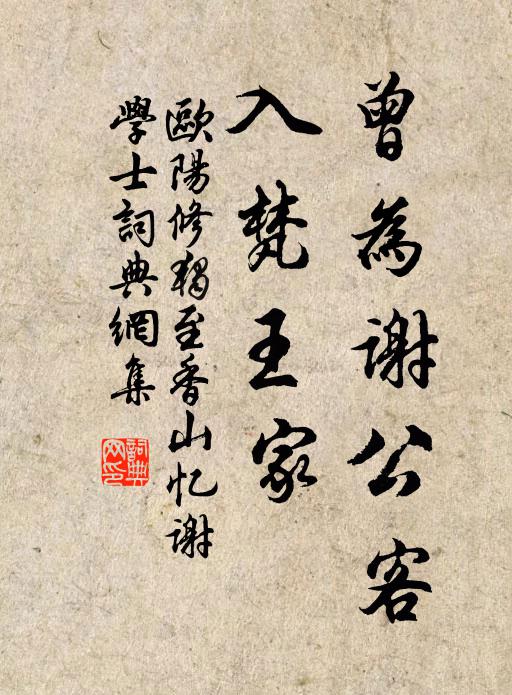 曾為謝公客
入梵王家
歐陽修獨至香山忆謝
學士詞典網集
詞典网印